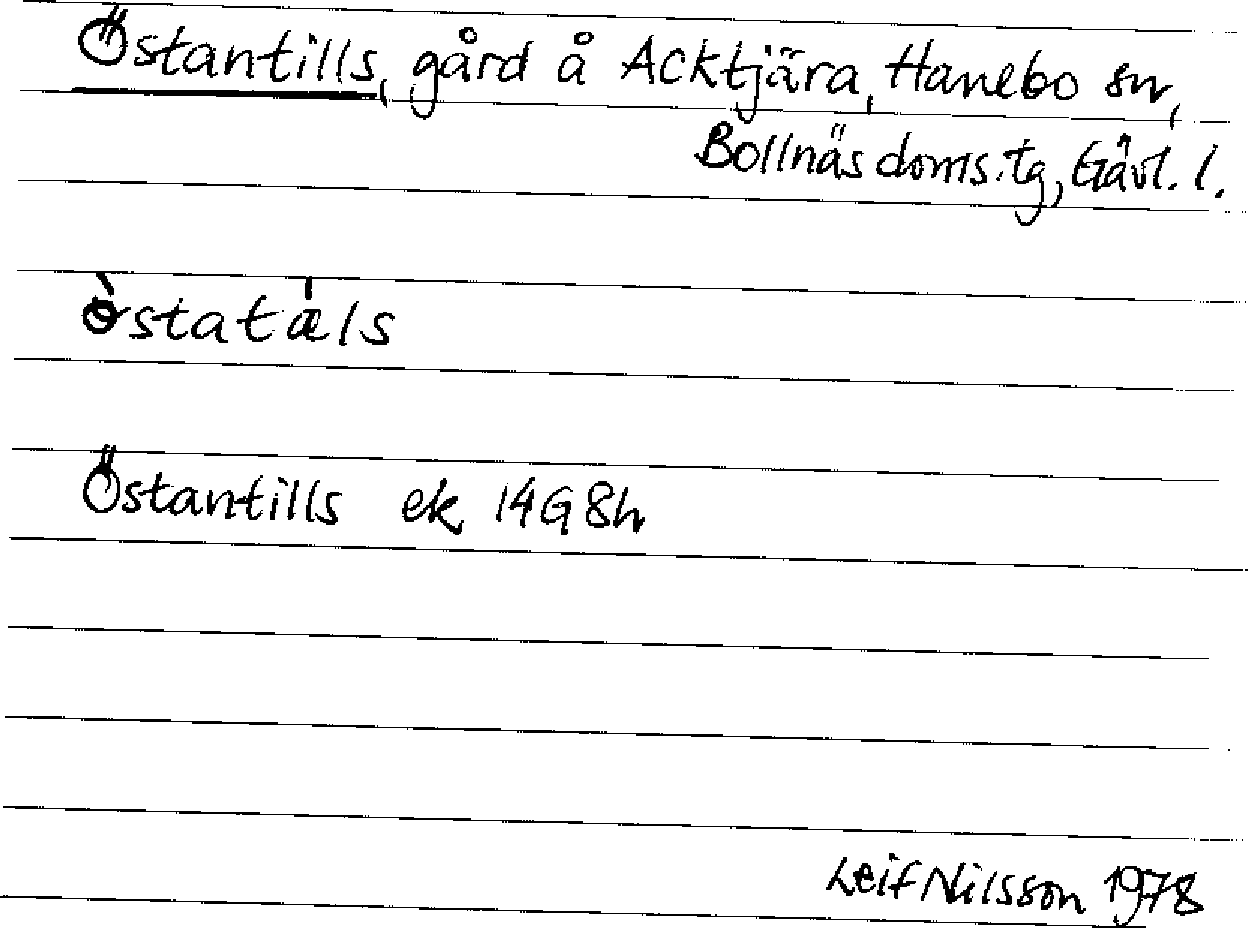 Östantills, gård å Acktjära, Hanebo sn,
Bollnäs doms.tg, Gävl. l.
òstatǽls
Östantills ek 14G 8h
Leif Nilsson 1978